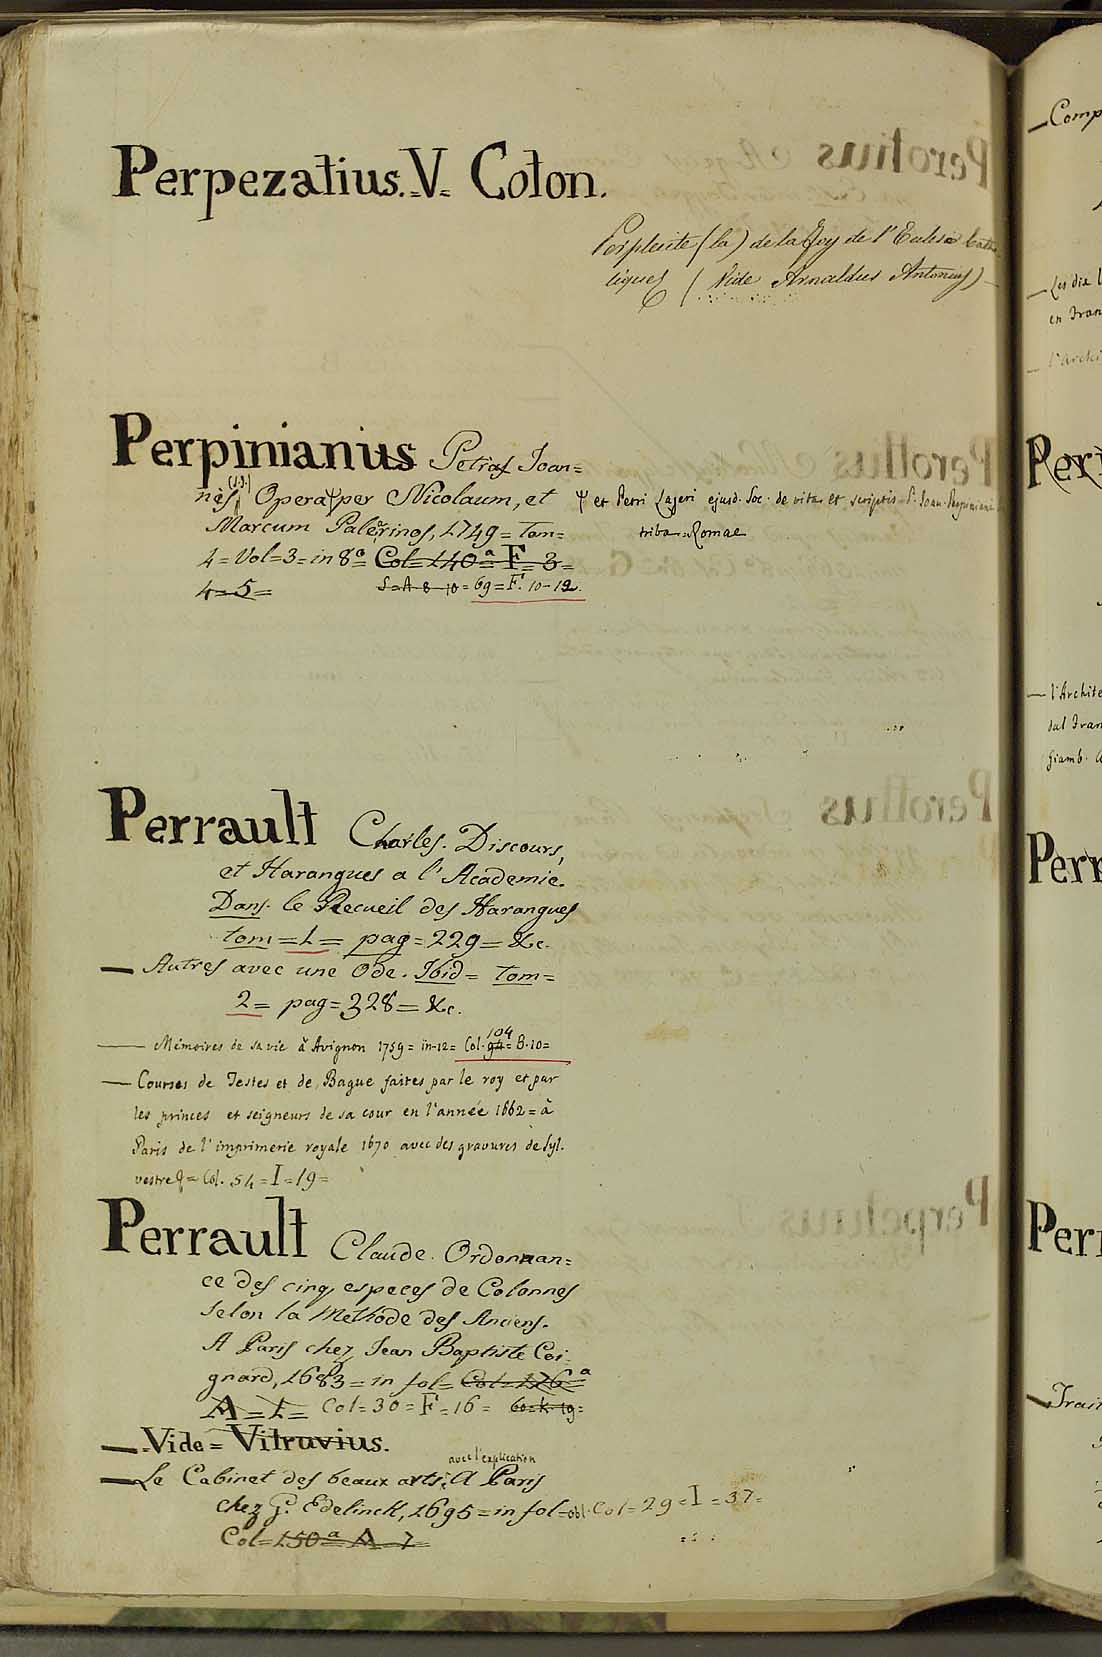 Perpezatius.=V= Coton.
Perpleuite (la) de la foy de l'Eclise Catho
liques ( Vide Arnaldus Antonius) —
Perpinianius Petrus Joan=
nes (S.J.) Opera ψ per Nicolaum, et ψ et Petri Lazeri ejusd. Soc. de vita et scriptis P. Joan. Perpiniani
Marcum Palearinos, 1749 = tom= triba. Romae
4 = Vol = 3 = in 8º = Col = 140ª = F = 3 =
4 = 5 = S = A 8 10 = 69 = F. 10 - 12.
Perrault Charles. Discours,
et Harangues a l'Academie.
Dans le Recueil des Harangues
tom = 1 = pag = 229 = &c.
— Autres avec une Ode. Ibid = tom =
2 = pag = 328 = &c.
— Mémoires de sa vie à Avignon 1759 = in-12 = Col. 94 104 = B. 10 =
— Courses de Testes et de Bague faites par le roy et par
les princes et seigneurs de sa cour en l'année 1662 = à
Paris de l'imprimerie royale 1670 avec des gravures de Syl-
vestre = Col. 54 = I = 19 =
Perrault Claude. Ordonnan=
ce des cinq especes de Colonnes
selon la Méthode des Anciens.
A Paris chez Jean Baptiste Coi-
gnard, 1683 = in fol = Col = 126 = ª
A = 1 = Col = 30 = F = 16 = 60 = K. 19 =
— Vide = Vitruvius.
avec l'explication
— Le Cabinet des beaux arts. A Paris
chez G. Edelinck, 1695 = in fol = obl. Col = 29 = I = 37 =
Col = 150ª = A 7 =
— Comp
— Les dix l
en Fran
— l'archi
Per
— l'Archite
dal Fran
Giamb.
Perr
Perr
— Trait